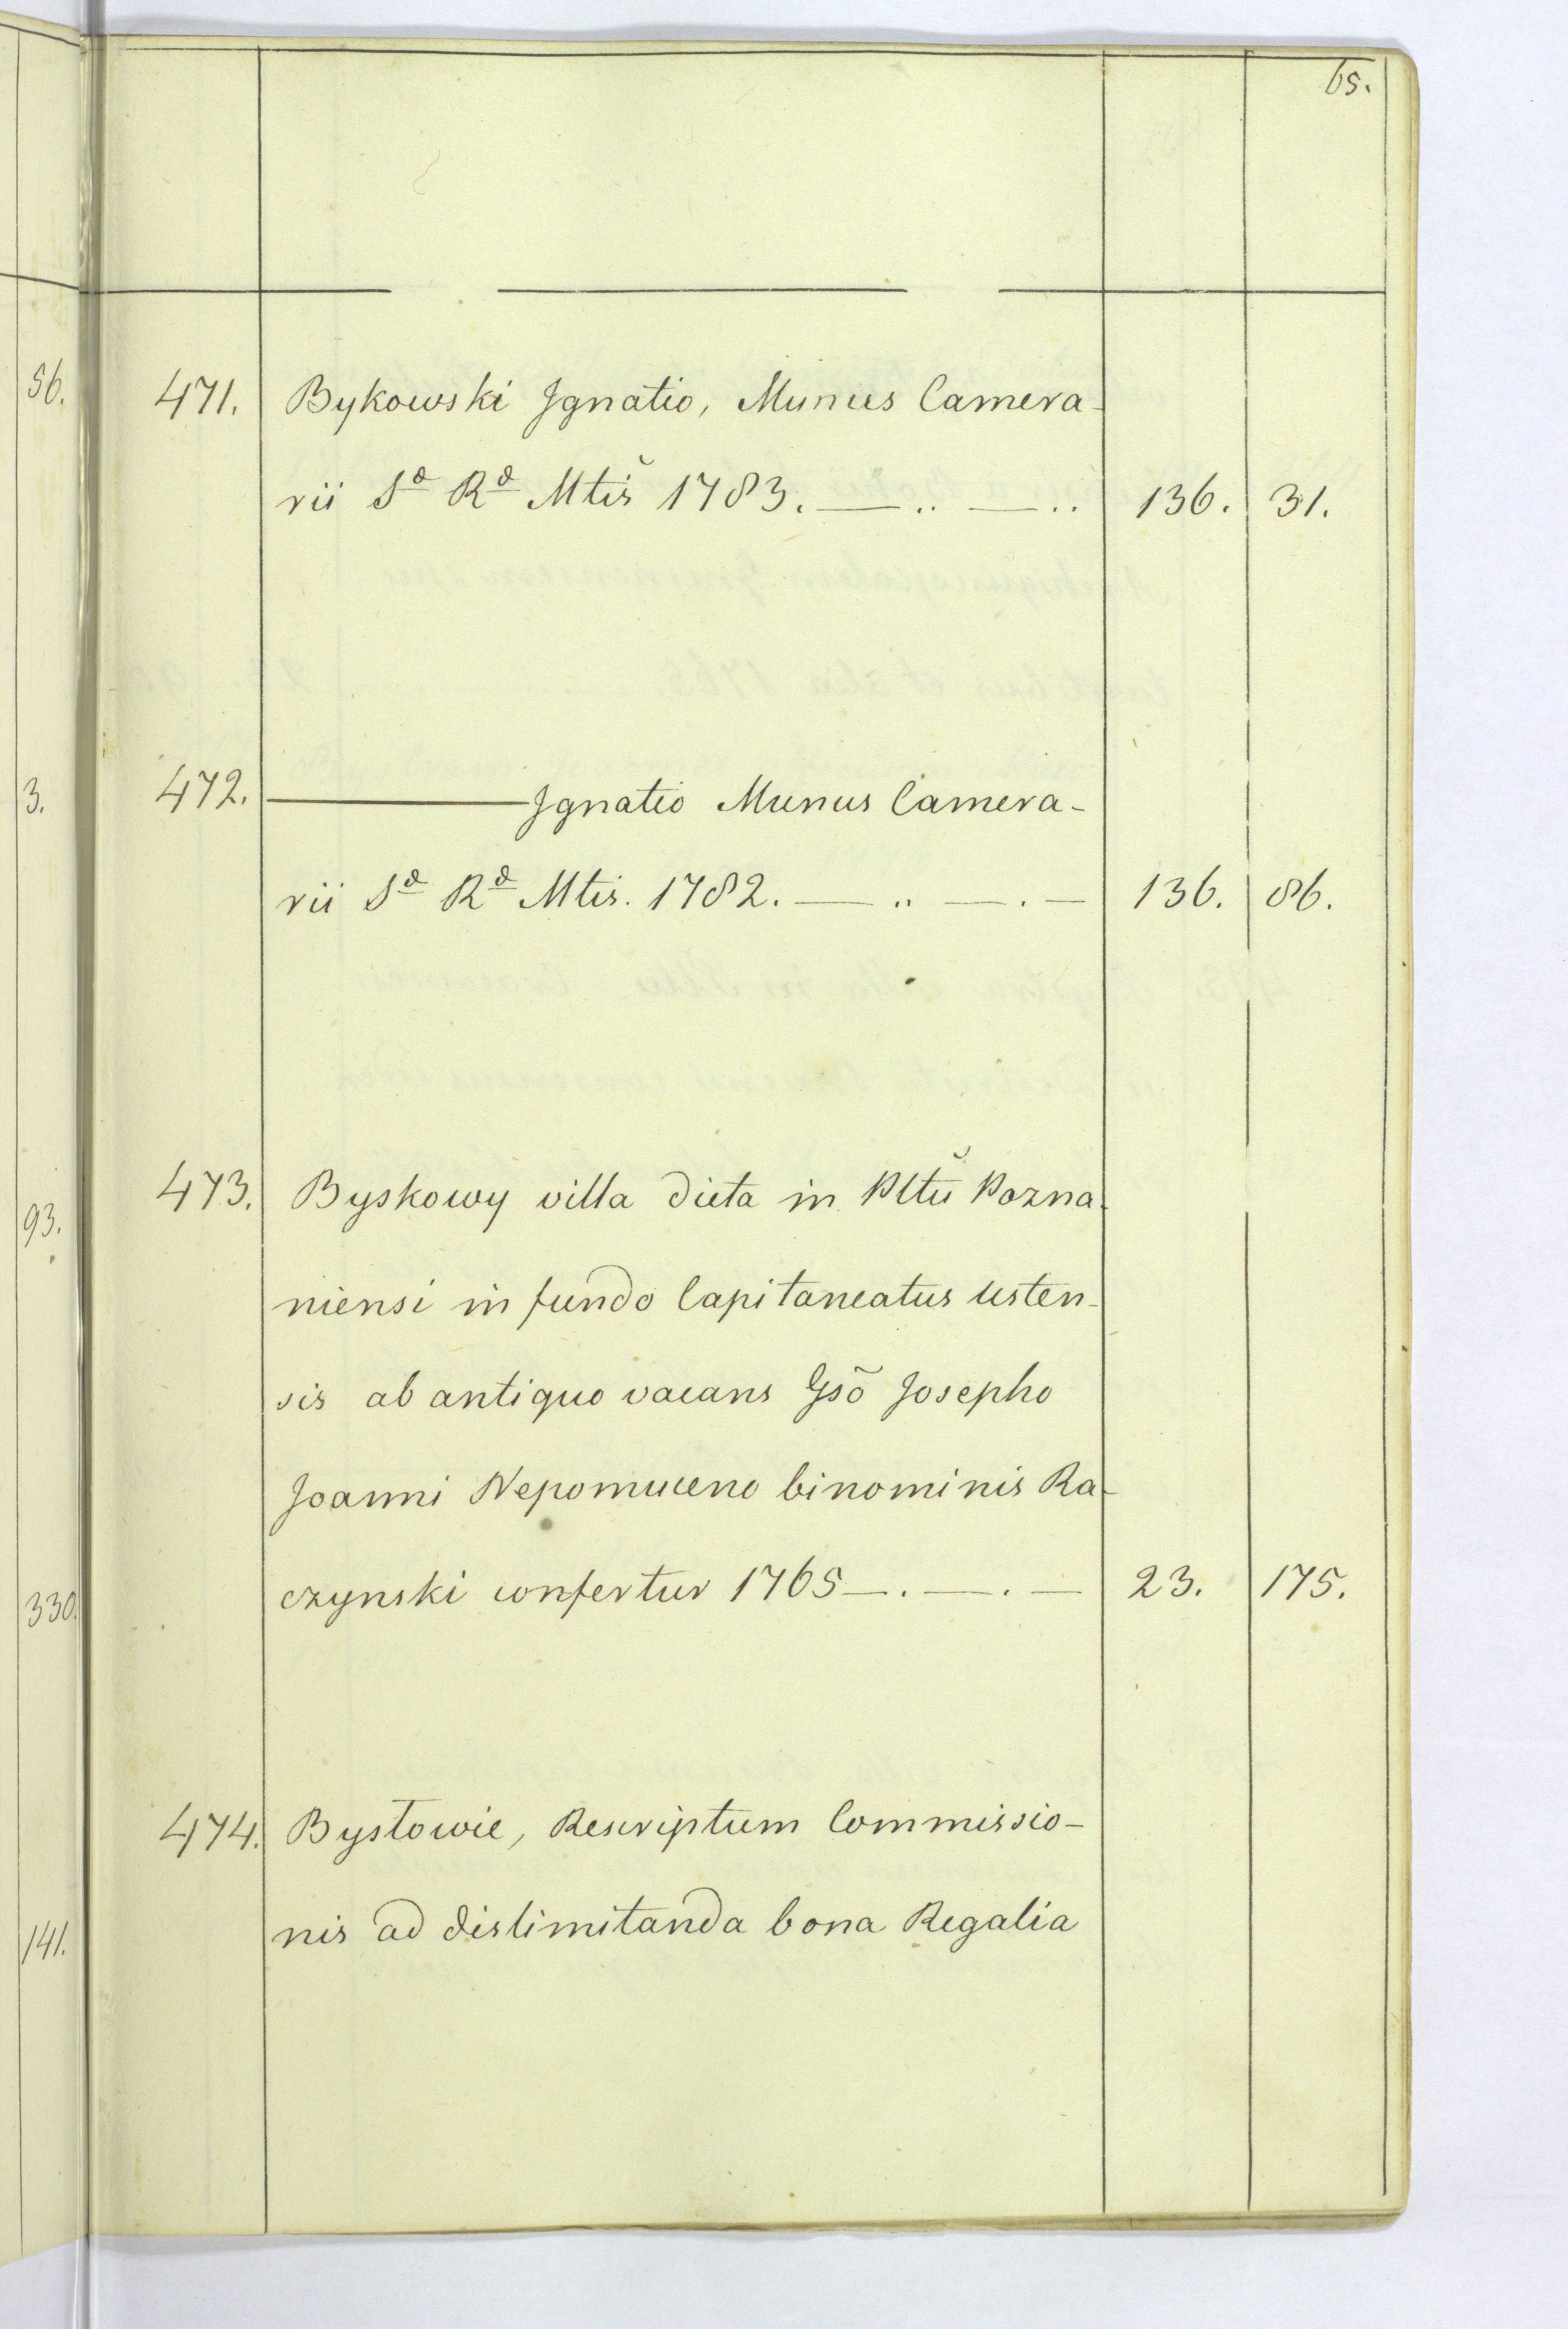 65.
56.
471. Bykowski Jgnatio, Munus Camera-
rii Sæ Ræ Mtis̆ 1783. — .. — .. 136. 31.
3.
472. ——— Jgnatio Munus Camera-
rii Sæ Ræ Mtis. 1782. — .. — . — 136. 86.
93.
473. Byskowy villa dicta in Pltŭ Pozna-
niensi in fundo Capitaneatus Usten-
sis ab antiquo vacans Gsõ Josepho
Joanni Nepomuceno binominis Ra-
czynski confertur 1765 — . — . — 23. 175.
330.
474. Bystowie, Rescriptum Commissio-
nis ad dislimitanda bona Regalia
141.